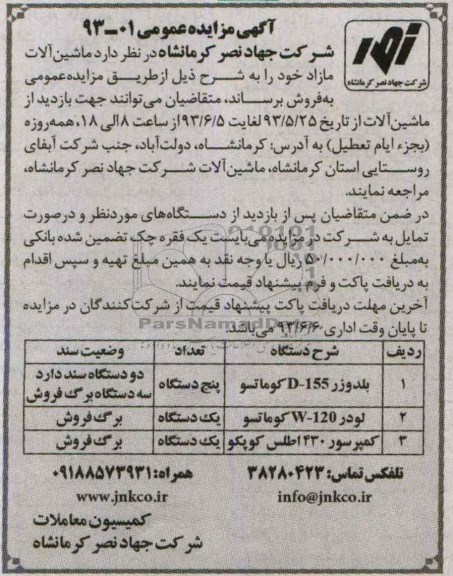 آگهی مزایده عمومی ۰۱-۹۳
شرکت جهاد نصر کرمانشاه در نظر دارد ماشین‌آلات
مازاد خود را به شرح ذیل از طریق مزایده‌عمومی
به‌فروش برساند، متقاضیان می‌توانند جهت بازدید از
شرکت جهاد نصر کرمانشاه
ماشین‌آلات از تاریخ ۹۳/۵/۲۵ لغایت ۹۳/۶/۵ از ساعت ۸ الی ۱۸، همه‌روزه
(بجزء ایام تعطیل) به آدرس: کرمانشاه، دولت‌آباد، جنب شرکت آبفای
روستایی استان کرمانشاه، ماشین‌آلات شرکت جهاد نصر کرمانشاه،
مراجعه نمایند.
در ضمن متقاضیان پس از بازدید از دستگاه‌های موردنظر و درصورت
تمایل به شرکت در مزایده می‌بایست یک فقره چک تضمین شده بانکی
به‌مبلغ ۵۰/۰۰۰/۰۰۰ ریال یا وجه نقد به همین مبلغ تهیه و سپس اقدام
به دریافت پاکت و فرم پیشنهاد قیمت نمایند.
آخرین مهلت دریافت پاکت پیشنهاد قیمت از شرکت‌کنندگان در مزایده
تا پایان وقت اداری ۹۳/۶/۶ می‌باشد.
ParsNamadData
ردیف شرح دستگاه تعداد وضعیت سند
۱ بلدوزر D-155 کوماتسو پنج دستگاه دو دستگاه سند دارد
سه دستگاه برگ فروش
۲ لودر W-120 کوماتسو یک دستگاه برگ فروش
۳ کمپرسور ۴۳۰ اطلس کوپکو یک دستگاه برگ فروش
تلفکس تماس: ۳۸۲۸۰۴۲۳ همراه: ۰۹۱۸۸۵۷۳۹۳۱
info@jnkco.ir www.jnkco.ir
کمیسیون معاملات
شرکت جهاد نصر کرمانشاه